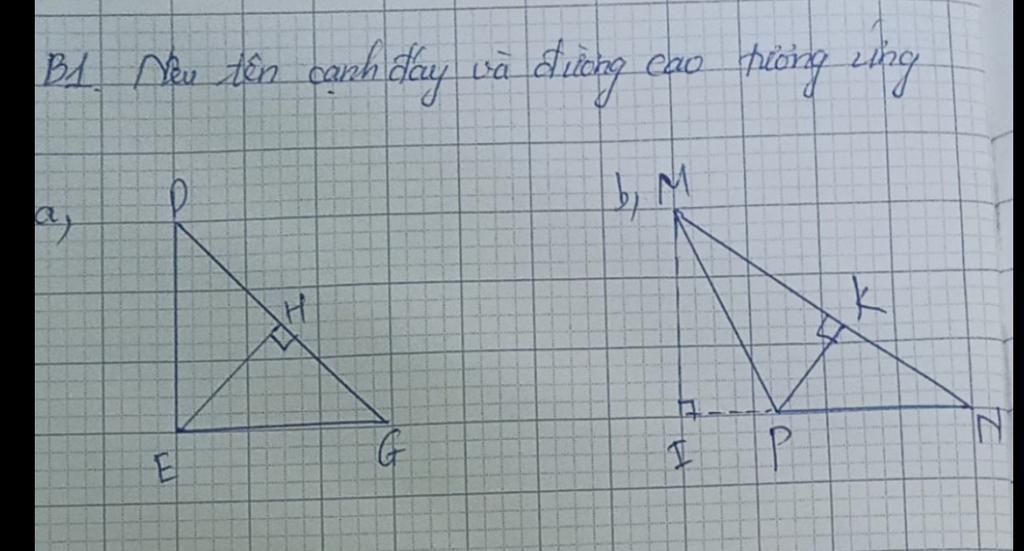 B1. Nêu tên cạnh đáy và đường cao tương ứng
a,
D
H
E
G
b,
M
K
I
P
N